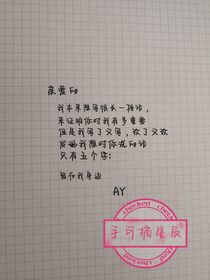 亲爱的
我本来想写很长一段话，
来证明你对我有多重要
但是我写了又写，改了又改
发现我想对你说的话
只有五个字：
留在我身边
AY
checked checked
予可摘星辰
checked checked